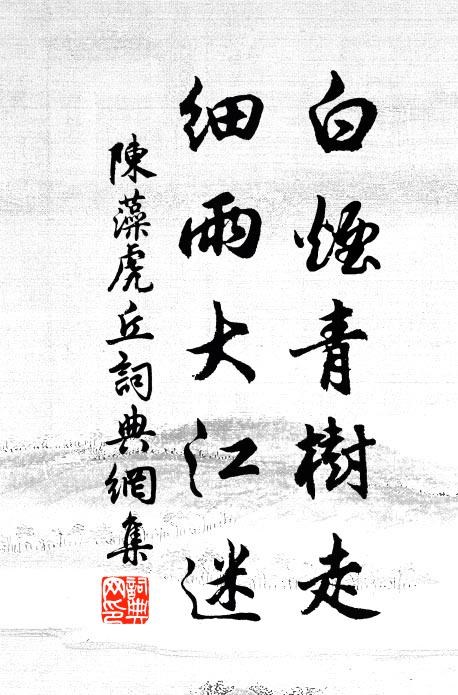 白煙青樹走
細雨大江迷
陳藻虎丘詞典網集
詞典網印